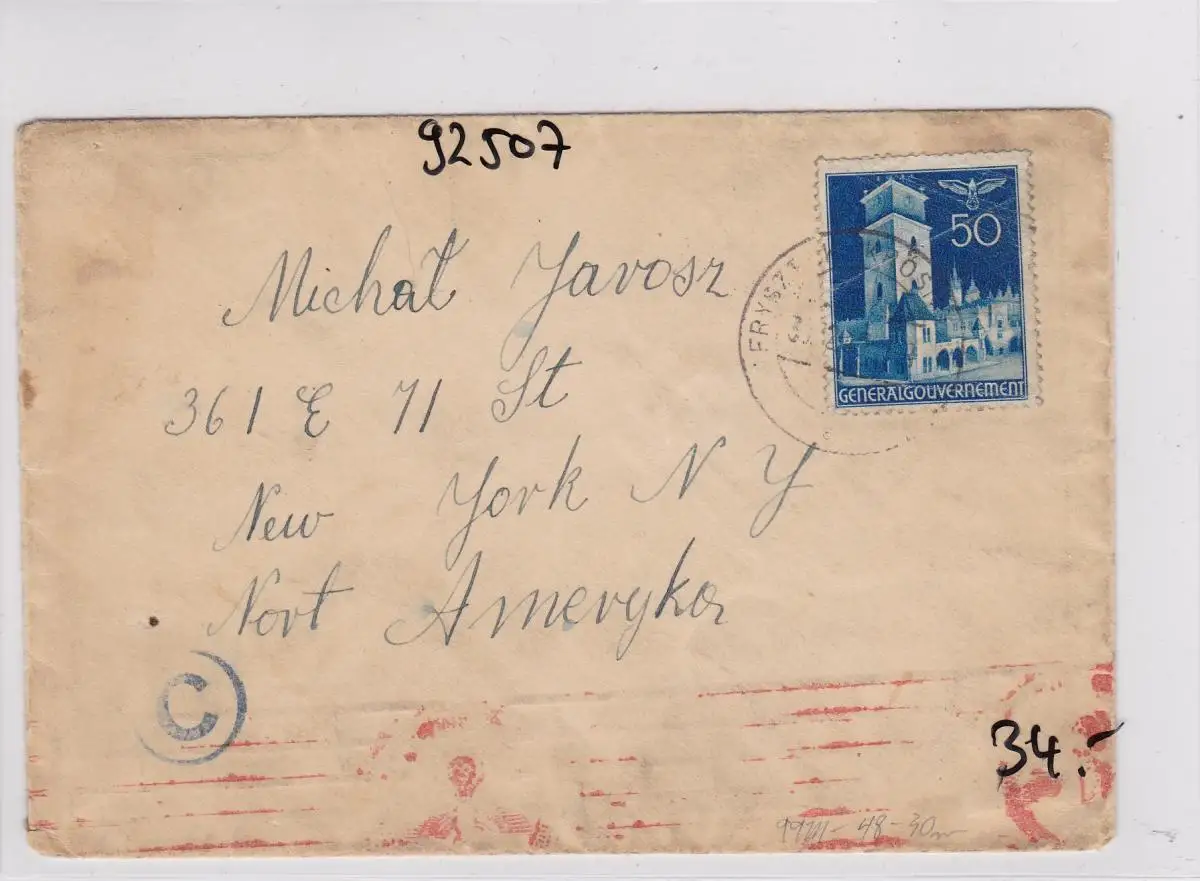 92507
50
GENERALGOUVERNEMENT
FRYSZT
Michał Jarosz
361 E 71 St
New York N Y
Nort Ameryka
C
34.-